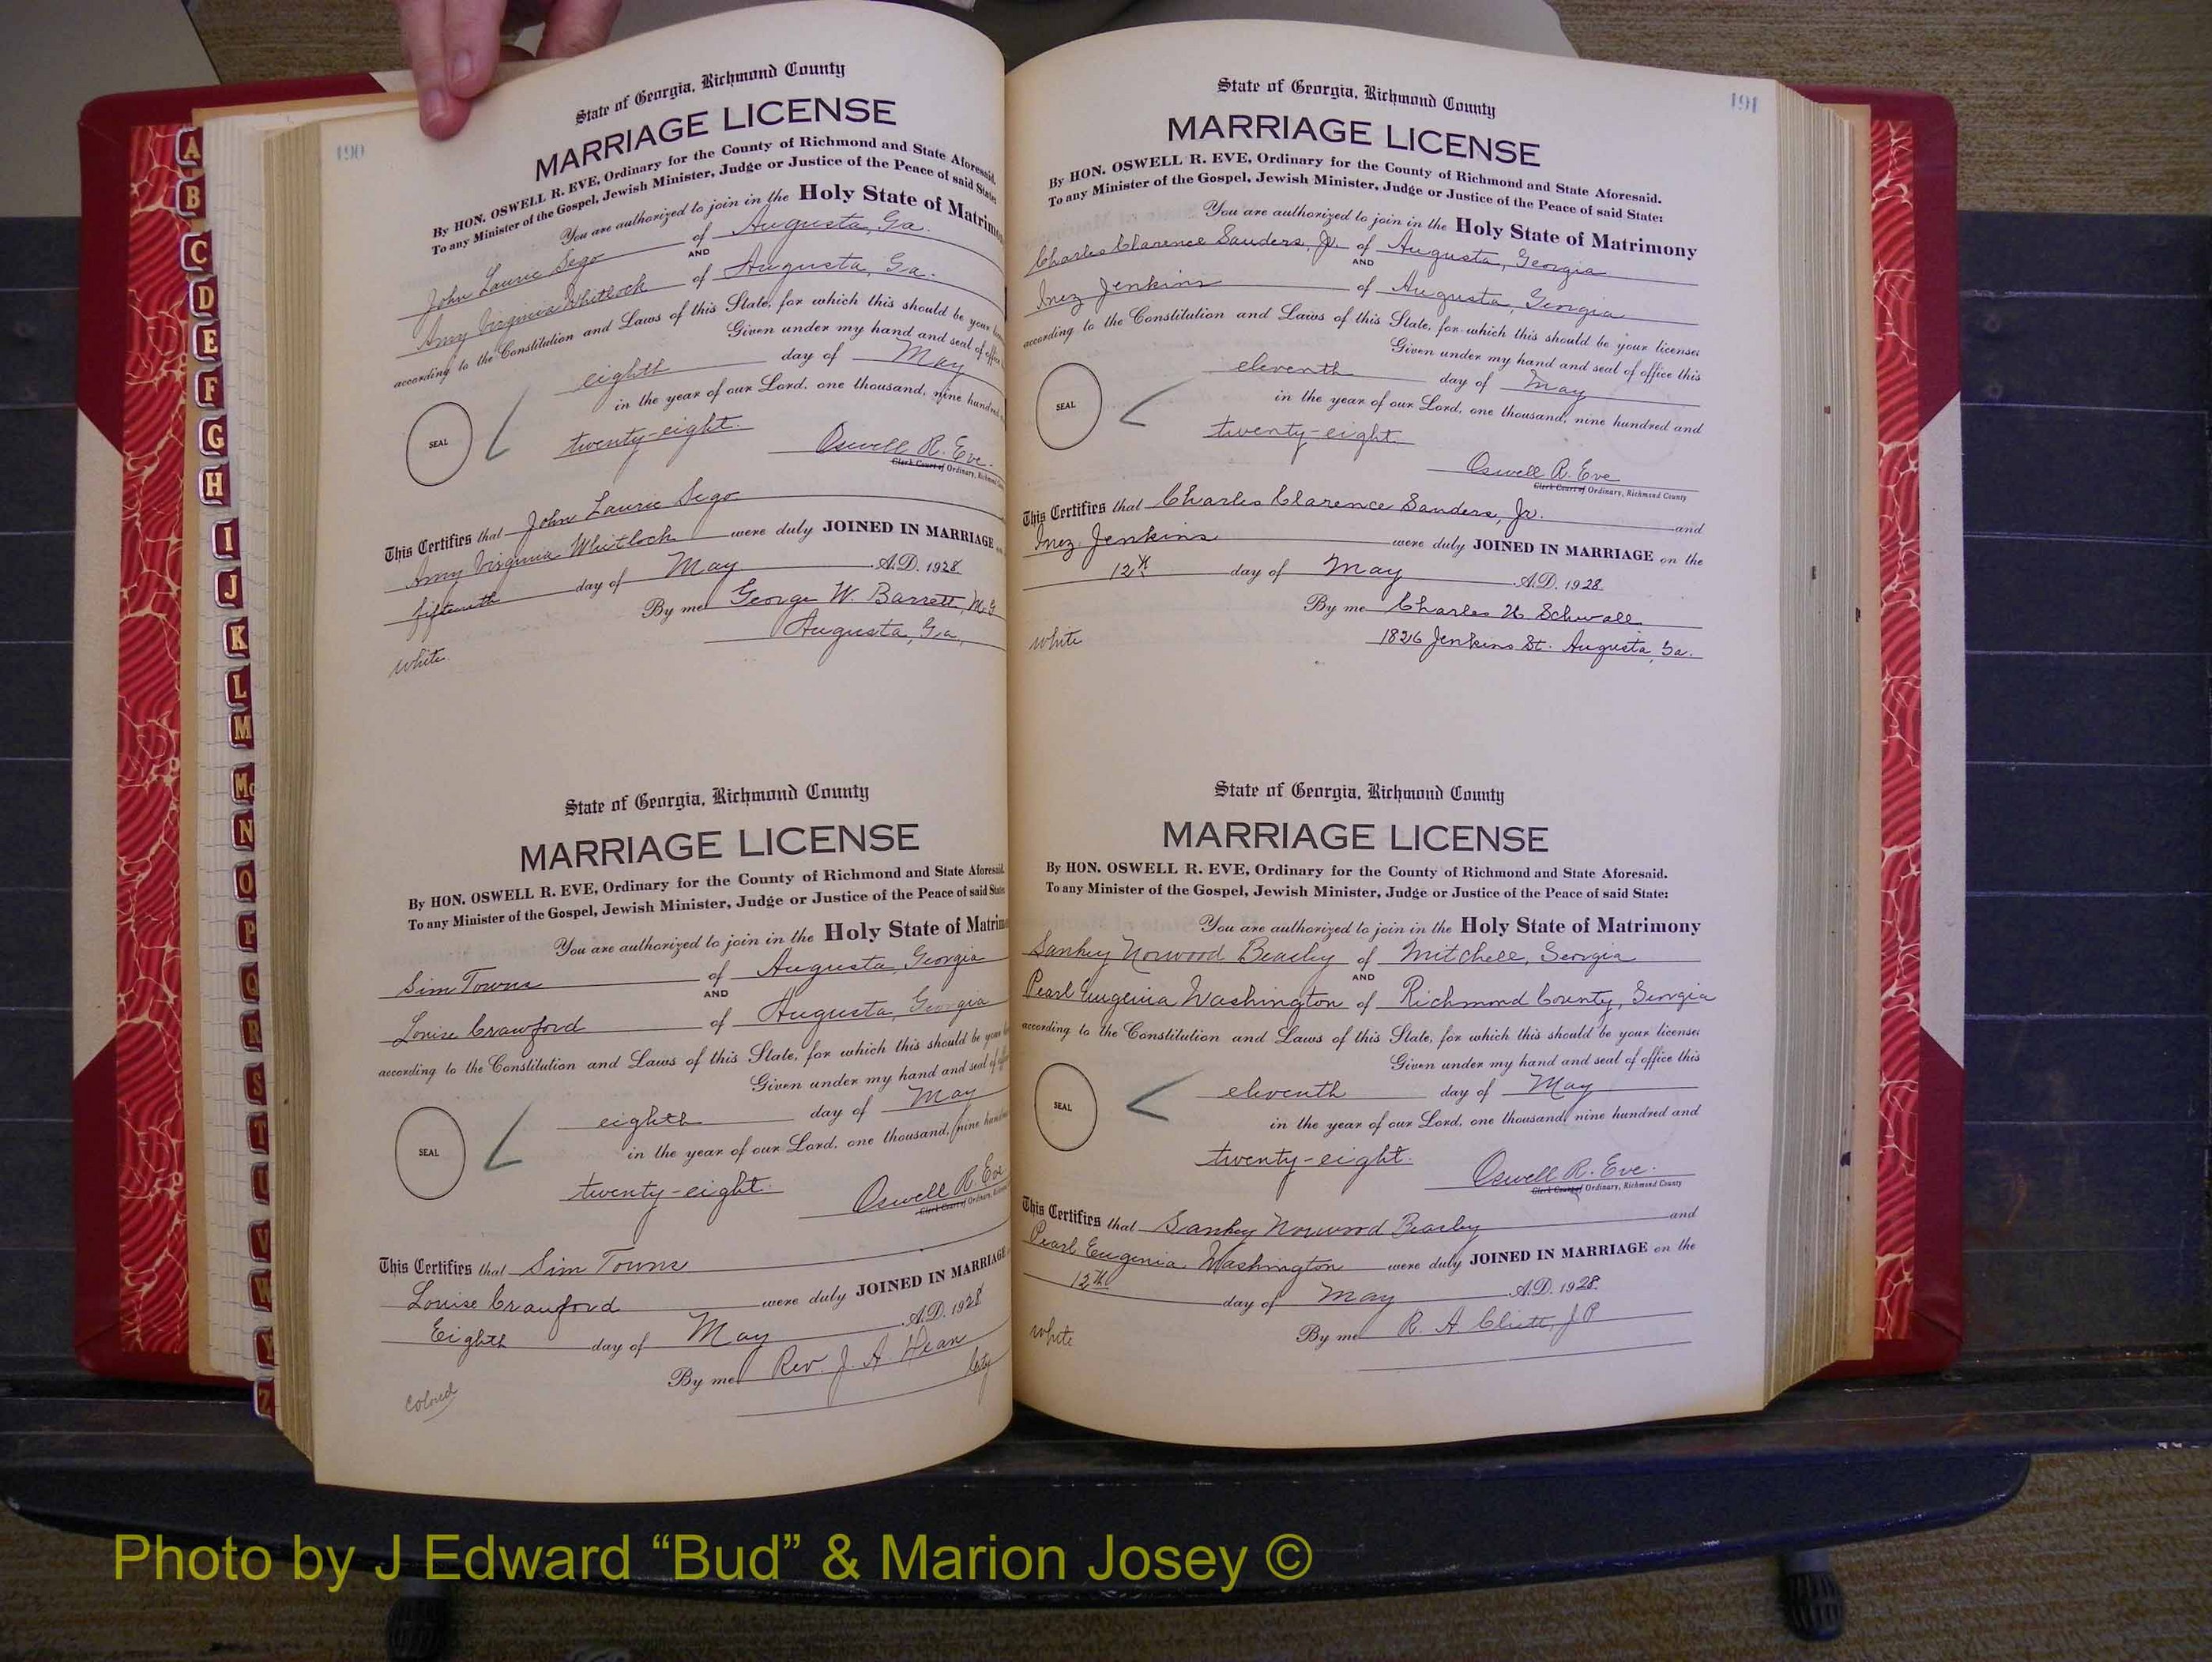 190
State of Georgia, Richmond County
MARRIAGE LICENSE
By HON. OSWELL R. EVE, Ordinary for the County of Richmond and State Aforesaid.
To any Minister of the Gospel, Jewish Minister, Judge or Justice of the Peace of said State:
You are authorized to join in the Holy State of Matrimo
John Laurie Sego of Augusta, Ga.
AND
Amy Virginia Whitlock of Augusta, Ga.
according to the Constitution and Laws of this State, for which this should be your
Given under my hand and seal of office
eighth day of May
in the year of our Lord, one thousand, nine hundred
twenty-eight.
Oswell R. Eve.
Clerk Court of Ordinary, Richmond
SEAL
This Certifies that John Laurie Sego
Amy Virginia Whitlock were duly JOINED IN MARRIAGE
fifteenth day of May A.D. 1928
By me George W. Barrett, M.G
Augusta, Ga,
white.
State of Georgia, Richmond County
MARRIAGE LICENSE
By HON. OSWELL R. EVE, Ordinary for the County of Richmond and State Aforesaid.
To any Minister of the Gospel, Jewish Minister, Judge or Justice of the Peace of said State
You are authorized to join in the Holy State of Matrim
Sim Towns of Augusta, Georgia
AND
Louise Crawford of Augusta, Georgia
according to the Constitution and Laws of this State, for which this should be your
Given under my hand and seal of
eighth day of May
in the year of our Lord, one thousand, nine
twenty-eight.
Oswell R. Eve
Clerk Court of Ordinary, Richmond
SEAL
This Certifies that Sim Towns
Louise Crawford were duly JOINED IN MARRIAGE
Eighth day of May A.D. 1928
By me Rev. J. A. Dean
City
colored
191
State of Georgia, Richmond County
MARRIAGE LICENSE
By HON. OSWELL R. EVE, Ordinary for the County of Richmond and State Aforesaid.
To any Minister of the Gospel, Jewish Minister, Judge or Justice of the Peace of said State:
You are authorized to join in the Holy State of Matrimony
Charles Clarence Sanders, Jr. of Augusta, Georgia
AND
Inez Jenkins of Augusta, Georgia
according to the Constitution and Laws of this State, for which this should be your license;
Given under my hand and seal of office this
eleventh day of May
in the year of our Lord, one thousand, nine hundred and
twenty-eight.
Oswell R. Eve
Clerk Court of Ordinary, Richmond County
SEAL
This Certifies that Charles Clarence Sanders, Jr. and
Inez Jenkins were duly JOINED IN MARRIAGE on the
12th day of May A.D. 1928
By me Charles Schwall
1826 Jenkins St. Augusta, Ga.
white
State of Georgia, Richmond County
MARRIAGE LICENSE
By HON. OSWELL R. EVE, Ordinary for the County of Richmond and State Aforesaid.
To any Minister of the Gospel, Jewish Minister, Judge or Justice of the Peace of said State:
You are authorized to join in the Holy State of Matrimony
Sankey Norwood Beasley of Mitchell, Georgia
AND
Pearl Eugenia Washington of Richmond County, Georgia
according to the Constitution and Laws of this State, for which this should be your license;
Given under my hand and seal of office this
eleventh day of May
in the year of our Lord, one thousand, nine hundred and
twenty-eight.
Oswell R. Eve.
Clerk Court of Ordinary, Richmond County
SEAL
This Certifies that Sankey Norwood Beasley and
Pearl Eugenia Washington were duly JOINED IN MARRIAGE on the
12th day of May A.D. 1928
By me R. A. Cliett, J P
white
A
B
C
D
E
F
G
H
I
J
K
L
M
Mc
N
O
P
Q
R
S
T
U
V
W
Y
Z
Photo by J Edward “Bud” & Marion Josey ©